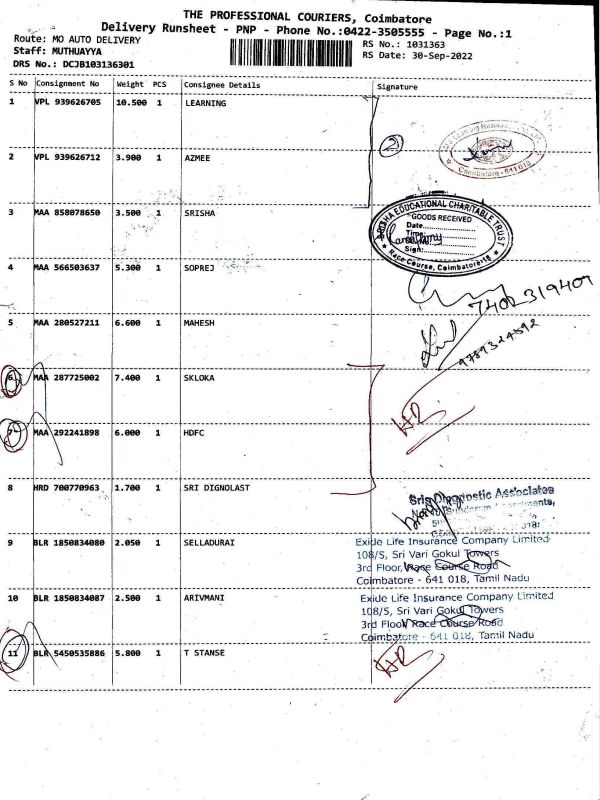 THE PROFESSIONAL COURIERS, Coimbatore
Delivery Runsheet - PNP - Phone No.:0422-3505555 - Page No.:1
Route: MO AUTO DELIVERY
RS No.: 1031363
Staff: MUTHUAYYA
RS Date: 30-Sep-2022
DRS No.: DCJB103136301
S No Consignment No Weight PCS Consignee Details Signature
1 VPL 939626705 10.500 1 LEARNING
2 VPL 939626712 3.900 1 AZMEE
2
Coimbatore - 641 018
3 MAA 858078650 3.500 1 SRISHA
EDUCATIONAL CHARITABLE TRUST
GOODS RECEIVED
Date
Time
Sign:
Race Course, Coimbatore-18
4 MAA 566503637 5.300 1 SOPREJ
7402319409
5 MAA 280527211 6.600 1 MAHESH
6 MAA 287725002 7.400 1 SKLOKA
7 MAA 292241898 6.000 1 HDFC
8 HRD 700770963 1.700 1 SRI DIGNOLAST
Diagnostic Associates
9 BLR 1850834080 2.050 1 SELLADURAI
Exide Life Insurance Company Limited
108/5, Sri Vari Gokul Towers
3rd Floor, Race Course Road
Coimbatore - 641 018, Tamil Nadu
10 BLR 1850834087 2.500 1 ARIVMANI
Exide Life Insurance Company Limited
108/5, Sri Vari Gokul Towers
3rd Floor Race Course Road
Coimbatore - 641 018, Tamil Nadu
11 BLR 5450535886 5.800 1 T STANSE